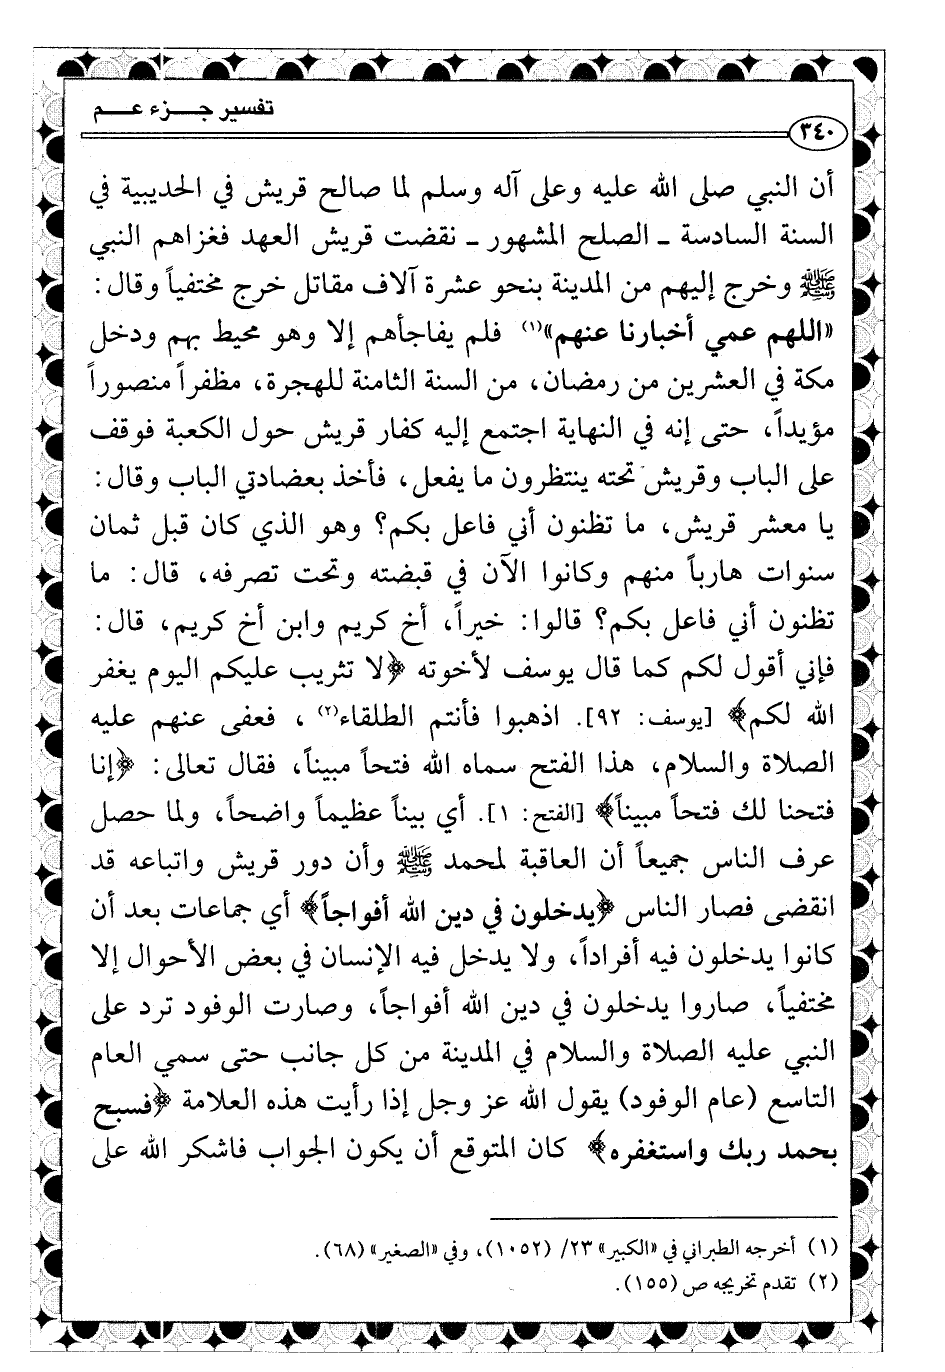 تفسير جـــزء عـــم
٣٤٠
أن النبي صلى الله عليه وعلى آله وسلم لما صالح قريش في الحديبية في
السنة السادسة ـ الصلح المشهور ـ نقضت قريش العهد فغزاهم النبي
ﷺ وخرج إليهم من المدينة بنحو عشرة آلاف مقاتل خرج مختفياً وقال:
«اللهم عمي أخبارنا عنهم»(١) فلم يفاجأهم إلا وهو محيط بهم ودخل
مكة في العشرين من رمضان، من السنة الثامنة للهجرة، مظفراً منصوراً
مؤيداً، حتى إنه في النهاية اجتمع إليه كفار قريش حول الكعبة فوقف
على الباب وقريش تحته ينتظرون ما يفعل، فأخذ بعضادتي الباب وقال:
يا معشر قريش، ما تظنون أني فاعل بكم؟ وهو الذي كان قبل ثمان
سنوات هارباً منهم وكانوا الآن في قبضته وتحت تصرفه، قال: ما
تظنون أني فاعل بكم؟ قالوا: خيراً، أخ كريم وابن أخ كريم، قال:
فإني أقول لكم كما قال يوسف لأخوته ﴿لا تثريب عليكم اليوم يغفر
الله لكم﴾ [يوسف: ٩٢]. اذهبوا فأنتم الطلقاء(٢)، فعفى عنهم عليه
الصلاة والسلام، هذا الفتح سماه الله فتحاً مبيناً، فقال تعالى: ﴿إنا
فتحنا لك فتحاً مبيناً﴾ [الفتح: ١]. أي بيناً عظيماً واضحاً، ولما حصل
عرف الناس جميعاً أن العاقبة لمحمد ﷺ وأن دور قريش واتباعه قد
انقضى فصار الناس ﴿يدخلون في دين الله أفواجاً﴾ أي جماعات بعد أن
كانوا يدخلون فيه أفراداً، ولا يدخل فيه الإنسان في بعض الأحوال إلا
مختفياً، صاروا يدخلون في دين الله أفواجاً، وصارت الوفود ترد على
النبي عليه الصلاة والسلام في المدينة من كل جانب حتى سمي العام
التاسع (عام الوفود) يقول الله عز وجل إذا رأيت هذه العلامة ﴿فسبح
بحمد ربك واستغفره﴾ كان المتوقع أن يكون الجواب فاشكر الله على
(١) أخرجه الطبراني في «الكبير» ٢٣/ (١٠٥٢)، وفي «الصغير» (٦٨).
(٢) تقدم تخريجه ص (١٥٥).